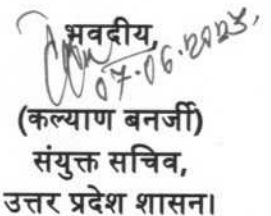 भवदीय,
07.06.2023,
(कल्याण बनर्जी)
संयुक्त सचिव,
उत्तर प्रदेश शासन।